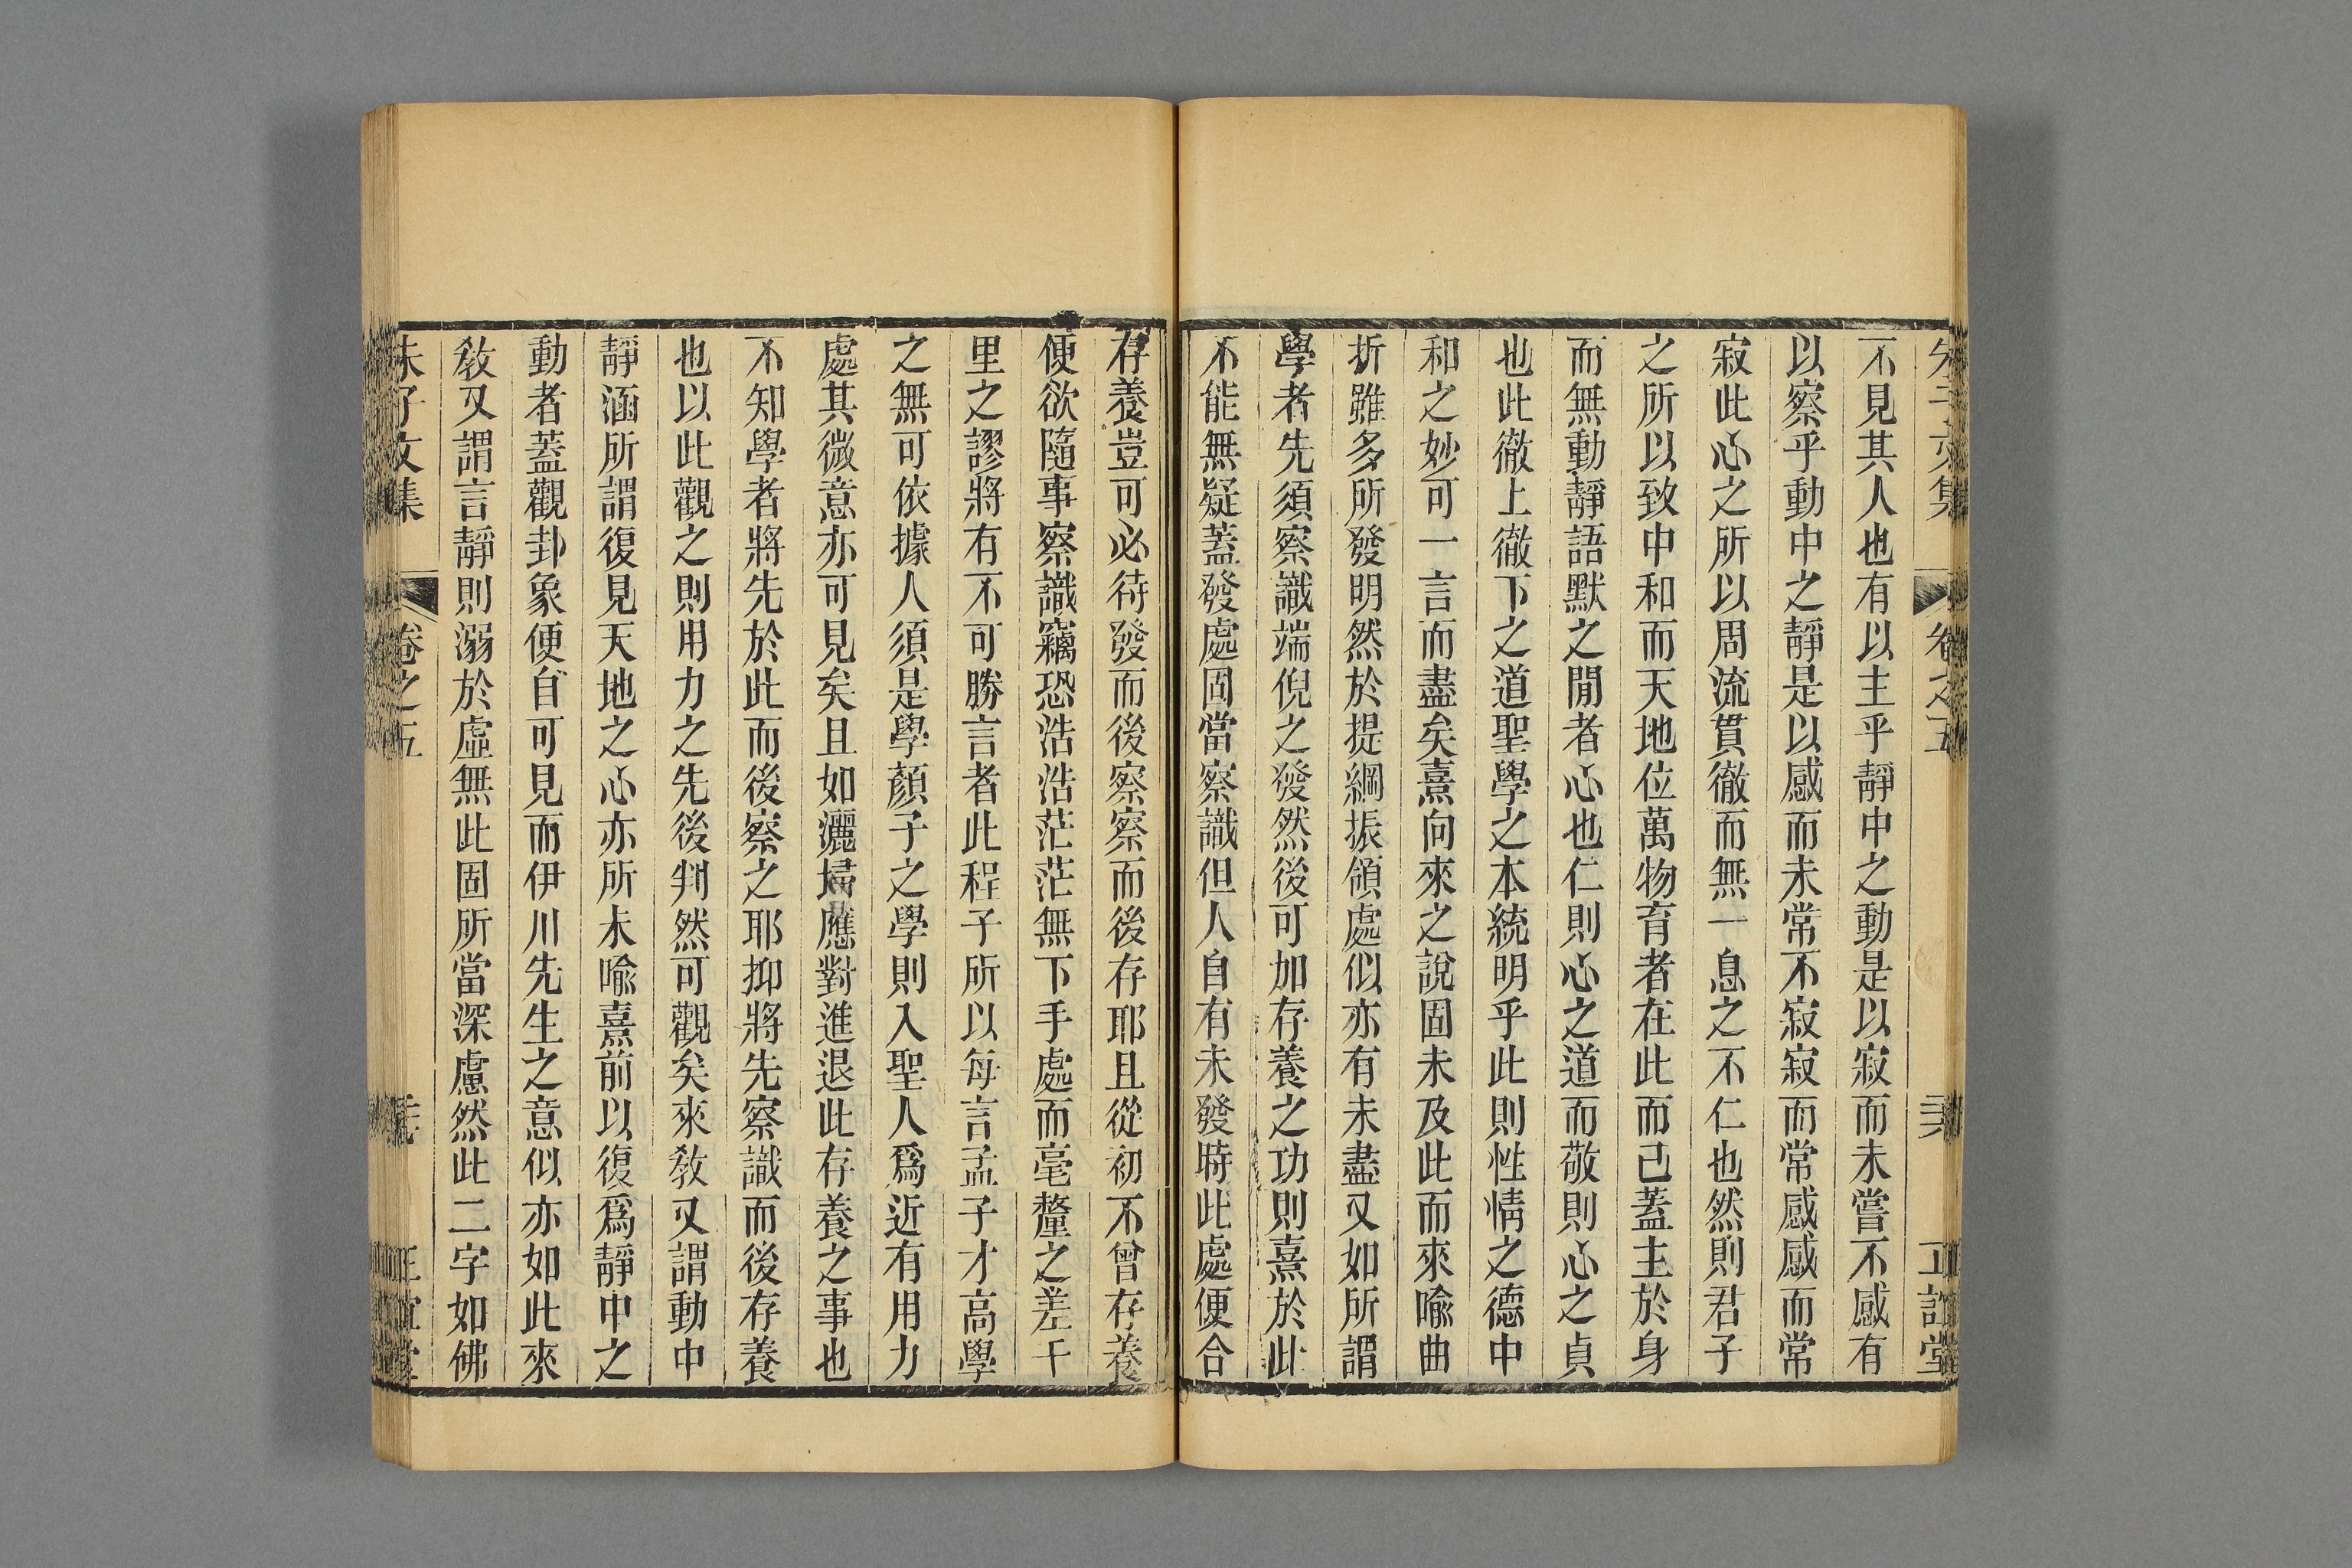 不見其人也有以主乎靜中之動是以寂而未嘗不感有
以察乎動中之靜是以感而未常不寂寂而常感感而常
寂此心之所以周流貫徹而無一息之不仁也然則君子
之所以致中和而天地位萬物育者在此而已蓋主於身
而無動靜語默之閒者心也仁則心之道而敬則心之貞
也此徹上徹下之道聖學之本統明乎此則性情之德中
和之妙可一言而盡矣熹向來之說固未及此而來喻曲
折雖多所發明然於提綱振領處似亦有未盡又如所謂
學者先須察識端倪之發然後可加存養之功則熹於此
不能無疑蓋發處固當察識但人自有未發時此處便合
存養豈可必待發而後察察而後存耶且從初不曾存養
便欲隨事察識竊恐浩浩茫茫無下手處而毫釐之差千
里之謬將有不可勝言者此程子所以每言孟子才高學
之無可依據人須是學顏子之學則入聖人爲近有用力
處其微意亦可見矣且如灑掃應對進退此存養之事也
不知學者將先於此而後察之耶抑將先察識而後存養
也以此觀之則用力之先後判然可觀矣來敎又謂動中
靜涵所謂復見天地之心亦所未喻熹前以復爲靜中之
動者蓋觀卦象便自可見而伊川先生之意似亦如此來
敎又謂言靜則溺於虛無此固所當深慮然此二字如佛
朱子文集 卷之五